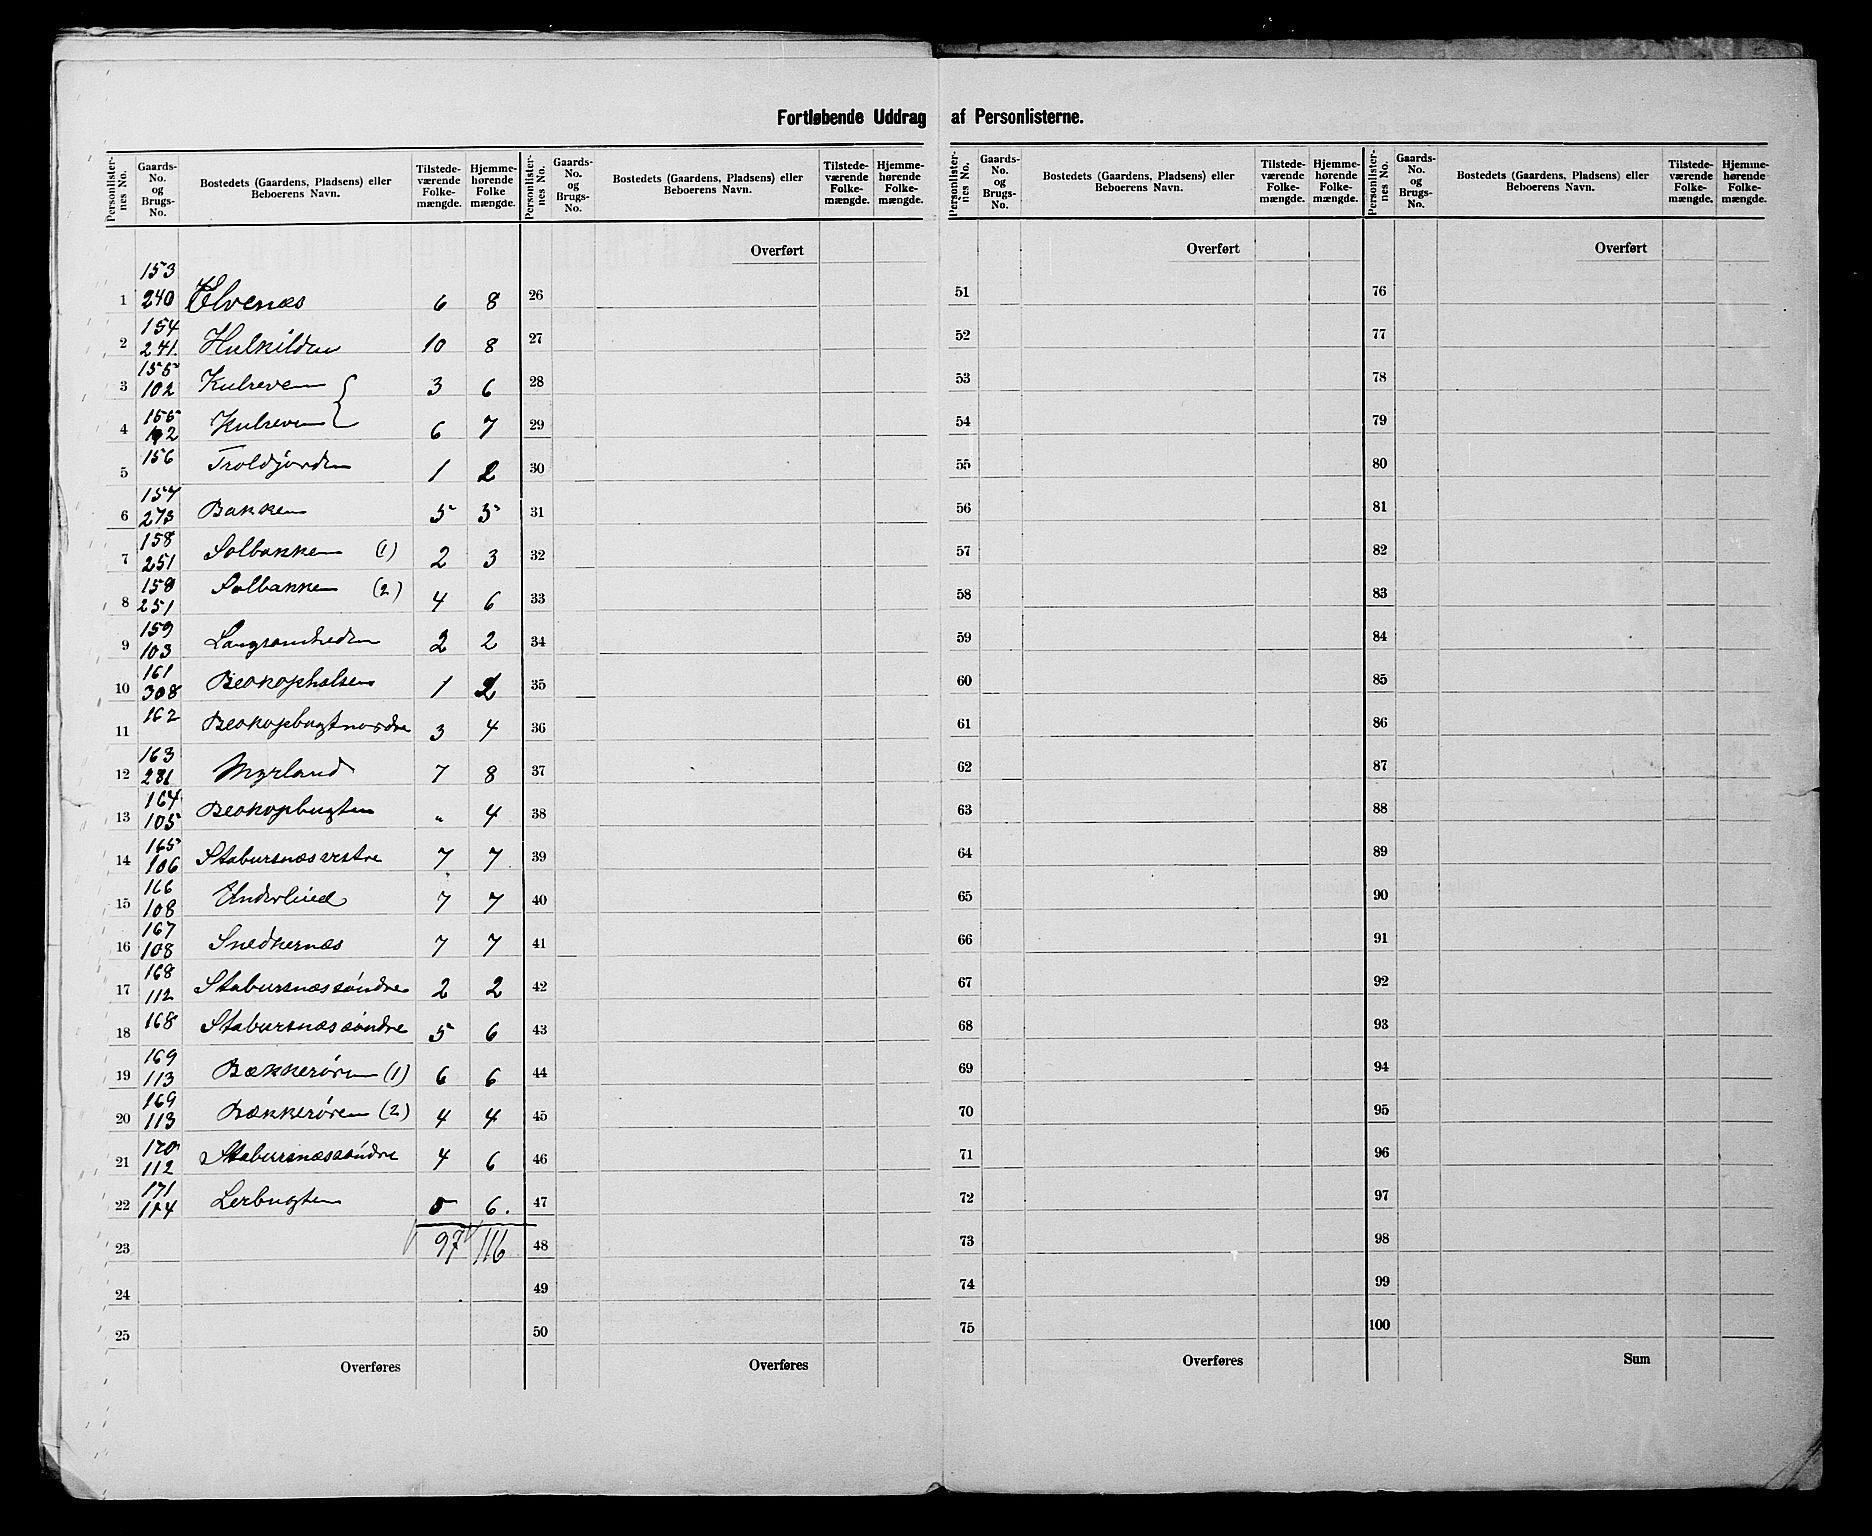 Fortløbende Uddrag af Personlisterne.
Personlister-nes No. | Gaards-No. og Brugs-No. | Bostedets (Gaardens, Pladsens) eller Beboerens Navn. | Tilstede-værende Folke-mængde. | Hjemme-hørende Folke mængde. | Personlister-nes No. | Gaards-No. og Brugs-No. | Bostedets (Gaardens, Pladsens) eller Beboerens Navn. | Tilstede-værende Folke-mængde. | Hjemme-hørende Folke-mængde. | Personlister-nes No. | Gaards-No. og Brugs-No. | Bostedets (Gaardens, Pladsens) eller Beboerens Navn. | Tilstede-værende Folke-mængde. | Hjemme-hørende Folke-mængde. | Personlister-nes No. | Gaards-No. og Brugs-No. | Bostedets (Gaardens, Pladsens) eller Beboerens Navn. | Tilstede-værende Folke-mængde. | Hjemme-hørende Folke-mængde.
Overført Overført Overført
1 153 240 Elvenæs 6 8 26 51 76
2 154 241. Hulkilden 10 8 27 52 77
3 155 102 Kulreven 3 6 28 53 78
4 155 102 Kulreven 6 7 29 54 79
5 156 Troldfjorden 1 2 30 55 80
6 157 273 Bakken 5 5 31 56 81
7 158 251 Solbakken (1) 2 3 32 57 82
8 158 251 Solbakken (2) 4 6 33 58 83
9 159 103 Langsomheden 2 2 34 59 84
10 161 308 Beokopholsen 1 2 35 60 85
11 162 Beokopbugtnordre 3 4 36 61 86
12 163 281 Myrland 7 8 37 62 87
13 164 105 Beokopbugten " 4 38 63 88
14 165 106 Stabursnæs vestre 7 7 39 64 89
15 166 108 Underlind 7 7 40 65 90
16 167 108 Snedkernæs 7 7 41 66 91
17 168 112 Stabursnæssøndre 2 2 42 67 92
18 168 Stabursnæssøndre 5 6 43 68 93
19 169 113 Bækkerøren (1) 6 6 44 69 94
20 169 113 Bækkerøren (2) 4 4 45 70 95
21 170 112 Stabursnæssøndre 4 6 46 71 96
22 171 114 Lerbugten 5 6. 47 72 97
23 97 116 48 73 98
24 49 74 99
25 50 75 100
Overføres Overføres Overføres Sum